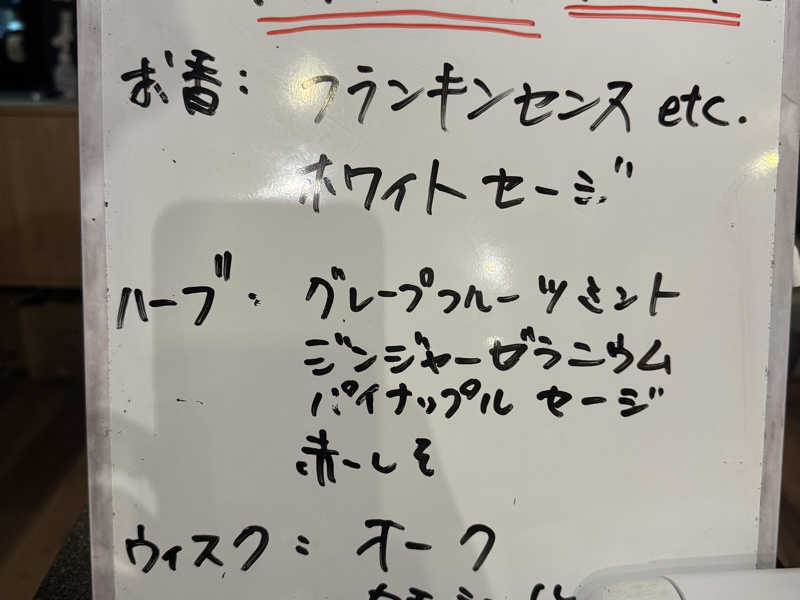 お香: フランキンセンス etc.
ホワイト セージ
ハーブ: グレープフルーツミント
ジンジャーゼラニウム
パイナップル セージ
赤ーしそ
ウィスク: オーク